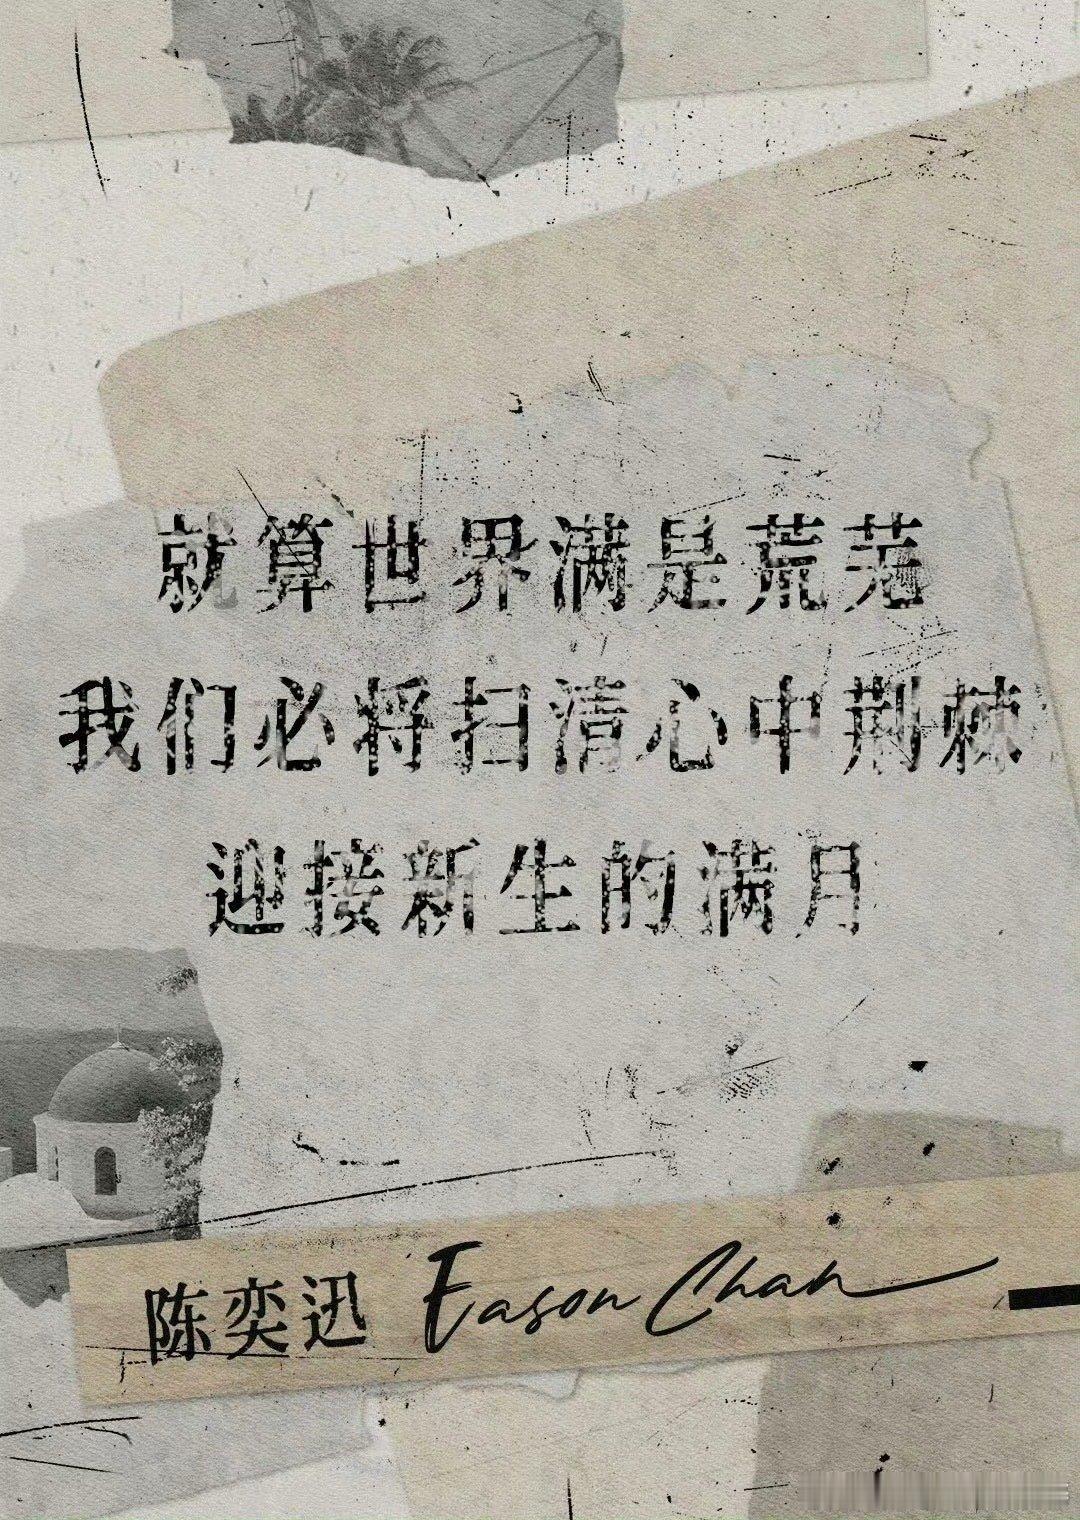 就算世界满是荒芜
我们必将扫清心中荆棘
迎接新生的满月
陈奕迅 Eason Chan